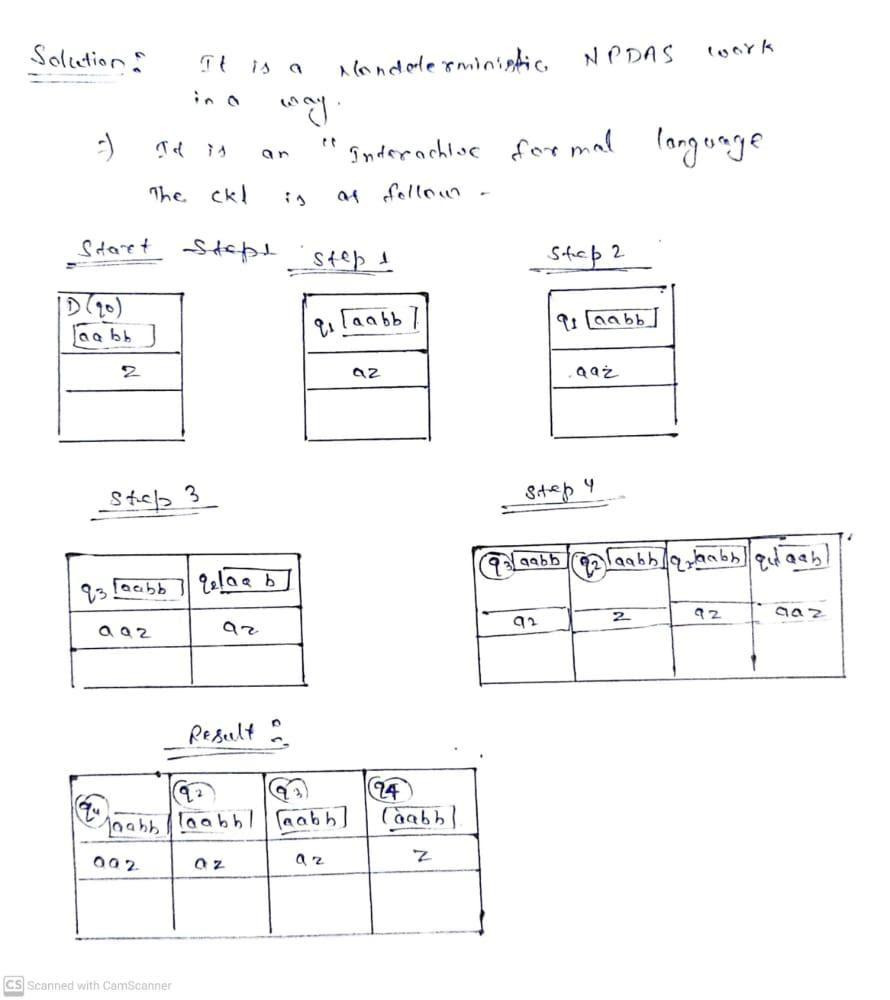 Solution :
It is a Nondeterministic NPDAS work
in a way.
=) It is an " Interachive formal language
The ckt is as follown -
Start Step1
Step 1
Step 2
D(q0)
aabb
z
q1 aabb
az
q1 aabb
aaz
Step 3
Step 4
q3 aabb
aaz
q2 aa b
az
q3 aabb
az
q2 aabb
z
q2 aabb
az
q4 aab
aaz
Result :
q4
aabb
aaz
q2
aabb
az
q3
aabb
az
q4
aabb
z
CS Scanned with CamScanner